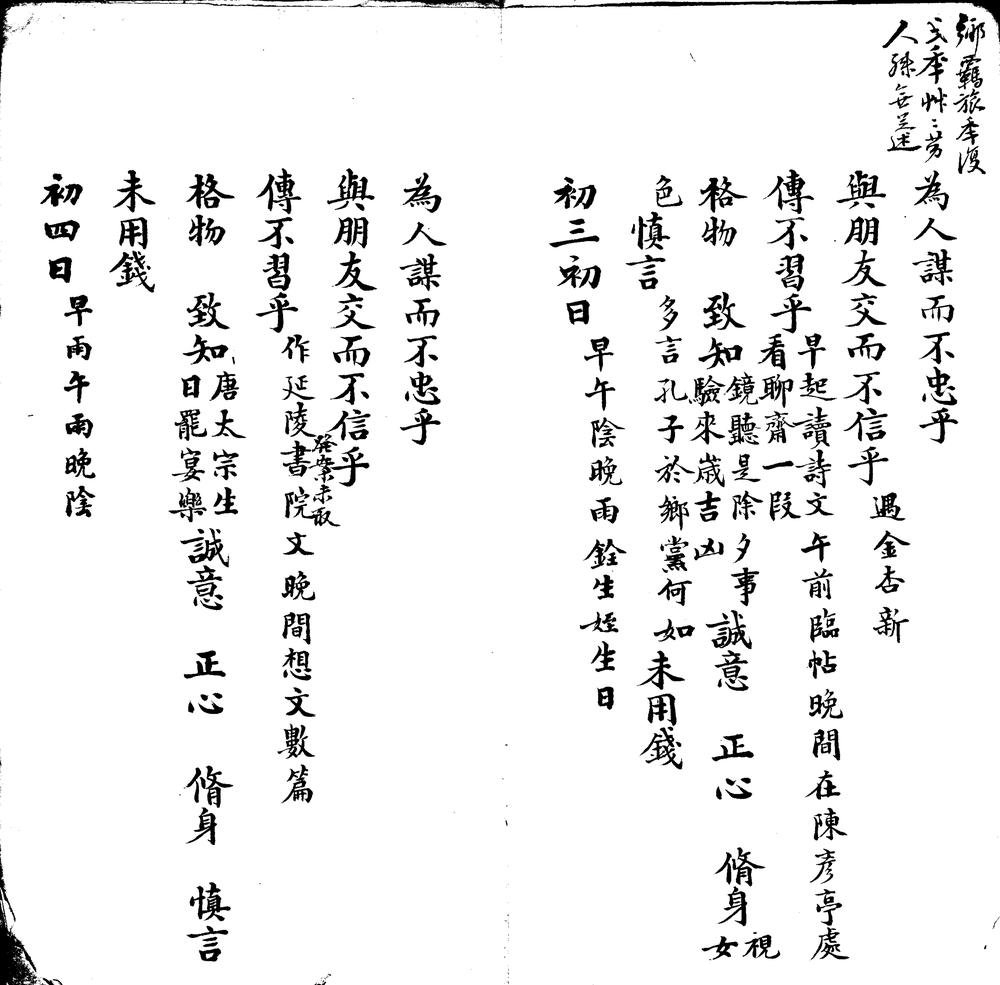 鄉羈旅年復
弍年艸〻勞
人殊無莁述
為人謀而不忠乎
與朋友交而不信乎 遇金杏新
傳不習乎 早起讀詩文午前臨帖晚間在陳彥亭處
看聊齋一段
格物 致知 鏡聽是除夕事 誠意 正心 脩身 視
驗來歲吉凶 女
色 慎言 多言孔子於鄉黨何如 未用錢
初三初日 早午陰晚雨銓生姪生日
為人謀而不忠乎
與朋友交而不信乎
發案未取
傳不習乎 作延陵書院文晚間想文數篇
格物 致知 唐太宗生 誠意 正心 脩身 慎言
日罷宴樂
未用錢
初四日 早雨午雨晚陰